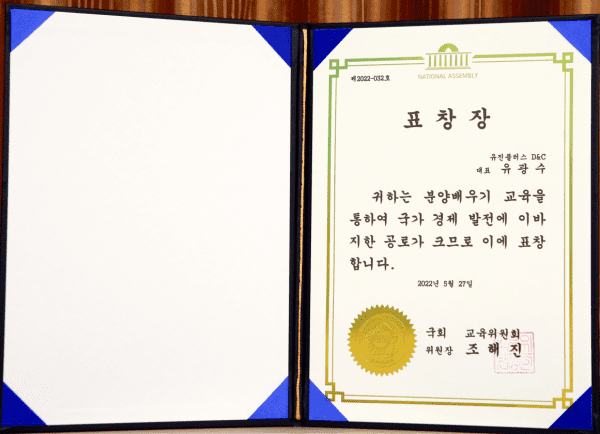 NATIONAL ASSEMBLY
제2022-032호
표 창 장
유진플러스 D&C
대표 유 광 수
귀하는 분양배우기 교육을
통하여 국가 경제 발전에 이바
지한 공로가 크므로 이에 표창
합니다.
2022년 5월 27일
국회 교육위원회
위원장 조 해 진